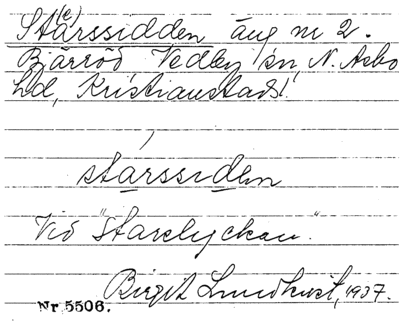 St(e)arssidden äng nr 2.
Bjärröd Vedby sn, N. Asbo
hd, Kristianstads l.
starssiden
Vid "Starelyckan".
Birgit Lundkvist, 1937.
Nr 5506.